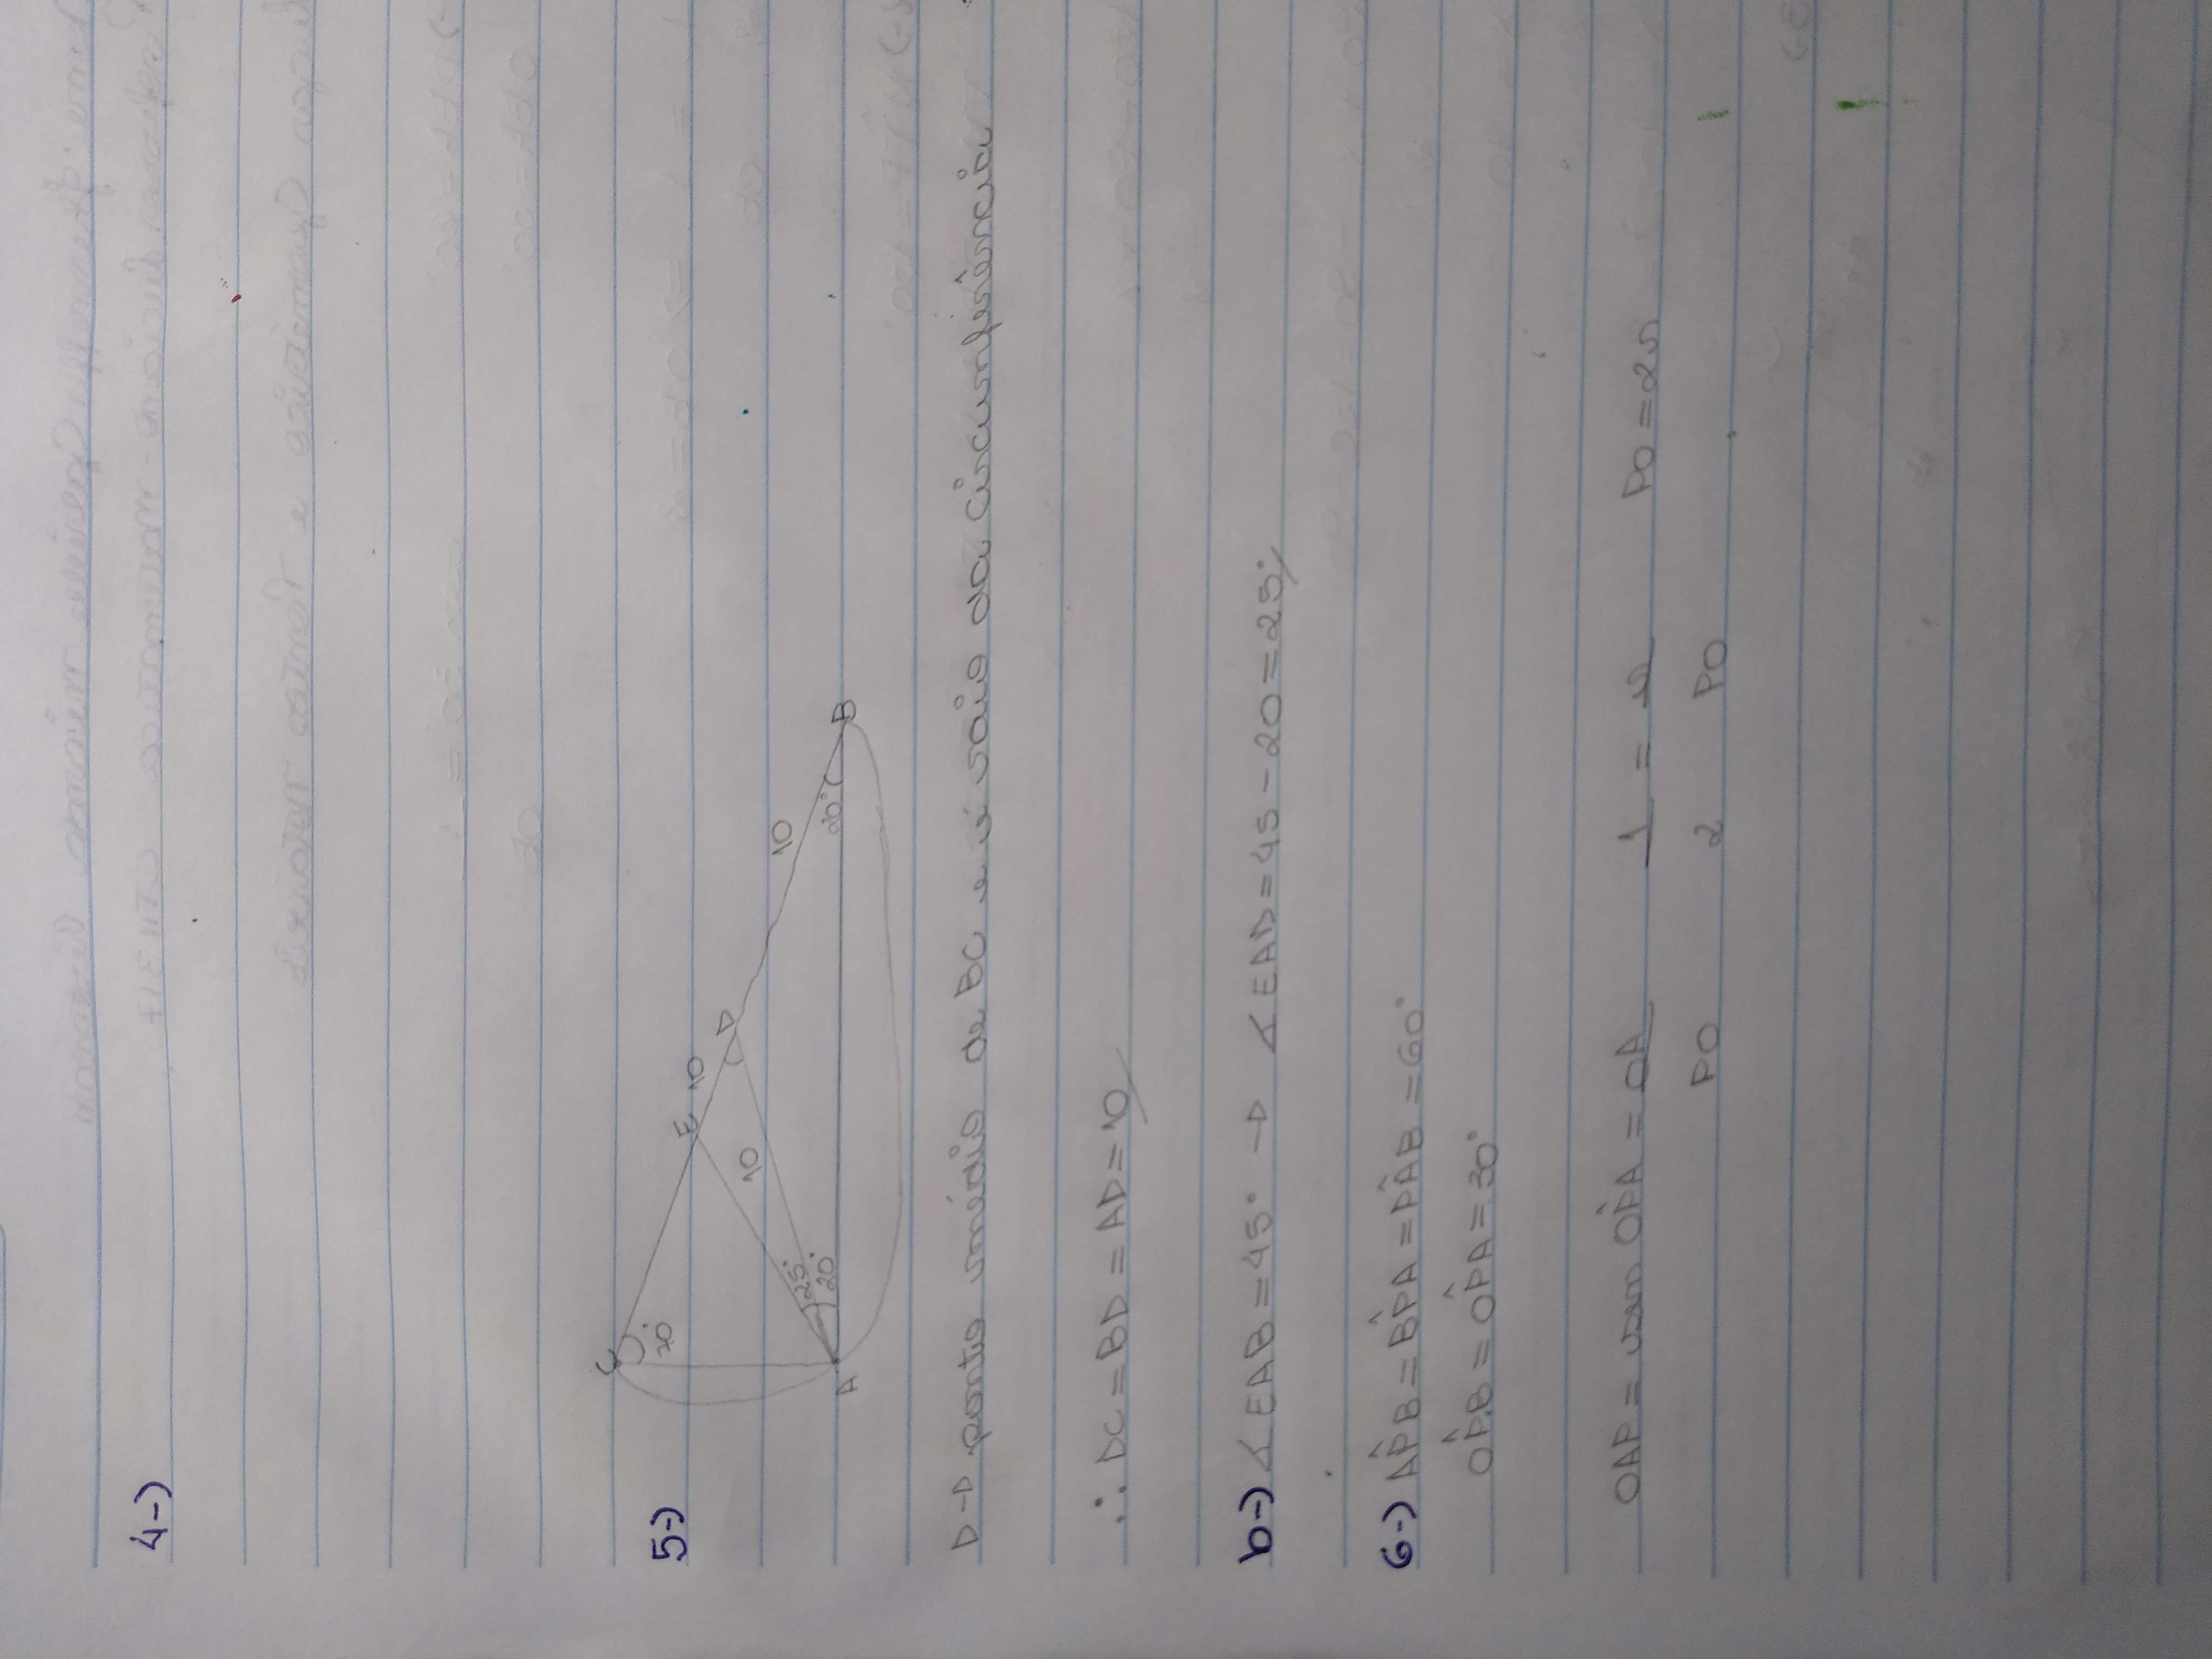 4-)
5-)
C
70°
E
10
D
10
10
25°
20°
20°
A
B
D→ ponto médio de BC e é raio da circunferência
∴ DC = BD = AD = 10
b-) ∡ EAB = 45° → ∡ EAD = 45 - 20 = 25°
6-) AP̂B = BP̂A = PÂB = 60°
OP̂B = OP̂A = 30°
OAP = sen OP̂A = OA/PO 1/2 = r/PO PO = 2r